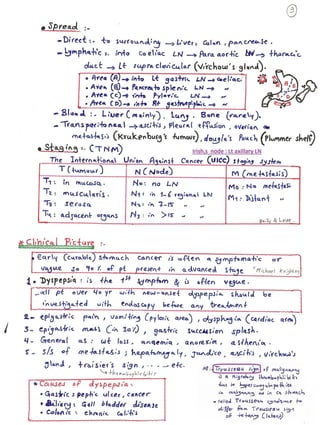 3
• Spread :-
- Direct :- to surrounding → Liver, Colon, pancrease.
- Lymphatic : into Coeliac LN → Para aortic LN → thoracic
duct → Lt supraclavicular (Virchow's gland).
• Area (A) → into Lt gastric LN → Coeliac
• Area (B) → Pancreatosplenic LN → "
• Area (C) → into Pyloric LN → "
• Area (D) → into Rt gastroepiploic → "
- Blood : Liver (mainly), Lung, Bone (rarely).
- Transperitoneal → ascitis, Pleural effusion, ovarian
metastasis (Krukenburg's tumour), douglas's Pouch (Plummer shelf)
• Staging :- (TNM)
Irish,s node : Lt axillary LN
The International Union Against Cancer (UICC) staging system
T (tumour) N (Node) M (metastasis)
T1 : in mucosa. No : no LN Mo : No metastasis
T2 : muscularis. N1 : in 1-6 regional LN M1 : Distant "
T3 : serosa N2 : in 7-15 " "
T4 : adjacent organs N3 : in >15 " "
Baily & Love
Clinical Picture :-
• early (curable) stomach cancer is often asymptomatic or
vague so 90% of pt present in advanced stage "Michael
1- Dyspepsia : is the 1st symptom & is often vague.
all pt over 40 yr with new-onset dyspepsia should be
investigated with endoscopy before any treatment
2- epigastric pain, vomiting (pyloric area), dysphagia (cardiac area)
3- epigastric mass (in 30%), gastric succession splash.
4- General as : wt loss, anaemia, anorexia, asthenia.
5- S/S of metastasis : hepatomegaly, Jundice, ascitis, virchow's
gland, troisier's sign, ... etc.
thrombophlebitis
• Causes of dyspepsia :
• Gastric : peptic ulcer, cancer
• Biliary : Gall bladder disease
• Colonic : chronic colitis
Trousseau sign of malignancy
is a migratory thrombophlebitis
due to hypercoagulability
in malignancy as in Ca stomach
• called Trousseau syndrome to
differ from Trousseau sign
of tetany (latent)